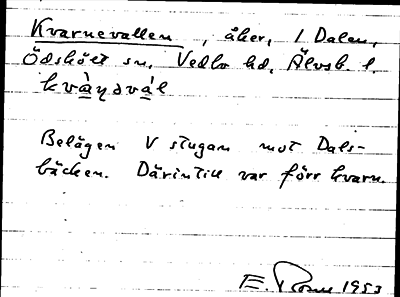 Kvarnevallen, åker, 1 Dalen,
Ödskölt sn, Vedbo hd, Älvsb. l.
Belägen V stugan mot Dals-
bäcken. Därintill var förr kvarn.
E. 1953